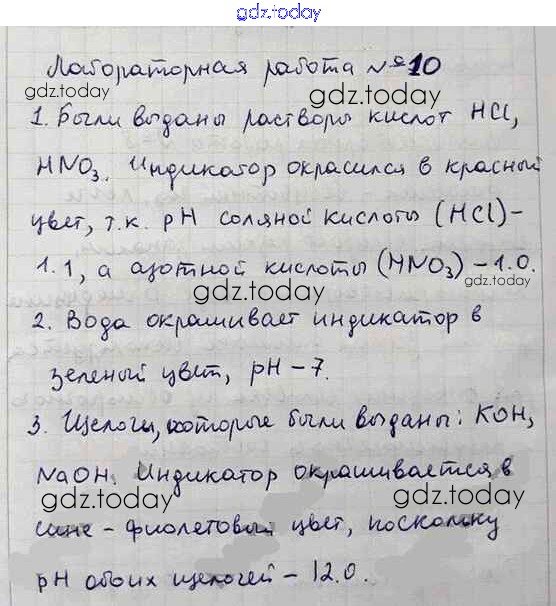 gdz.today
gdz.today
Лабораторная работа №10
gdz.today
1. Были выданы растворы кислот HCl,
HNO3. Индикатор окрасился в красный
gdz.today
цвет, т.к. pH соляной кислоты (HCl)–
1.1, а азотной кислоты (HNO3) – 1.0.
gdz.today
2. Вода окрашивает индикатор в
зеленый цвет, pH – 7.
gdz.today
3. Щелочи, которые были выданы: KOH,
NaOH. Индикатор окрашивается в
gdz.today
gdz.today
сине – фиолетовый цвет, поскольку
pH обоих щелочей – 12.0.